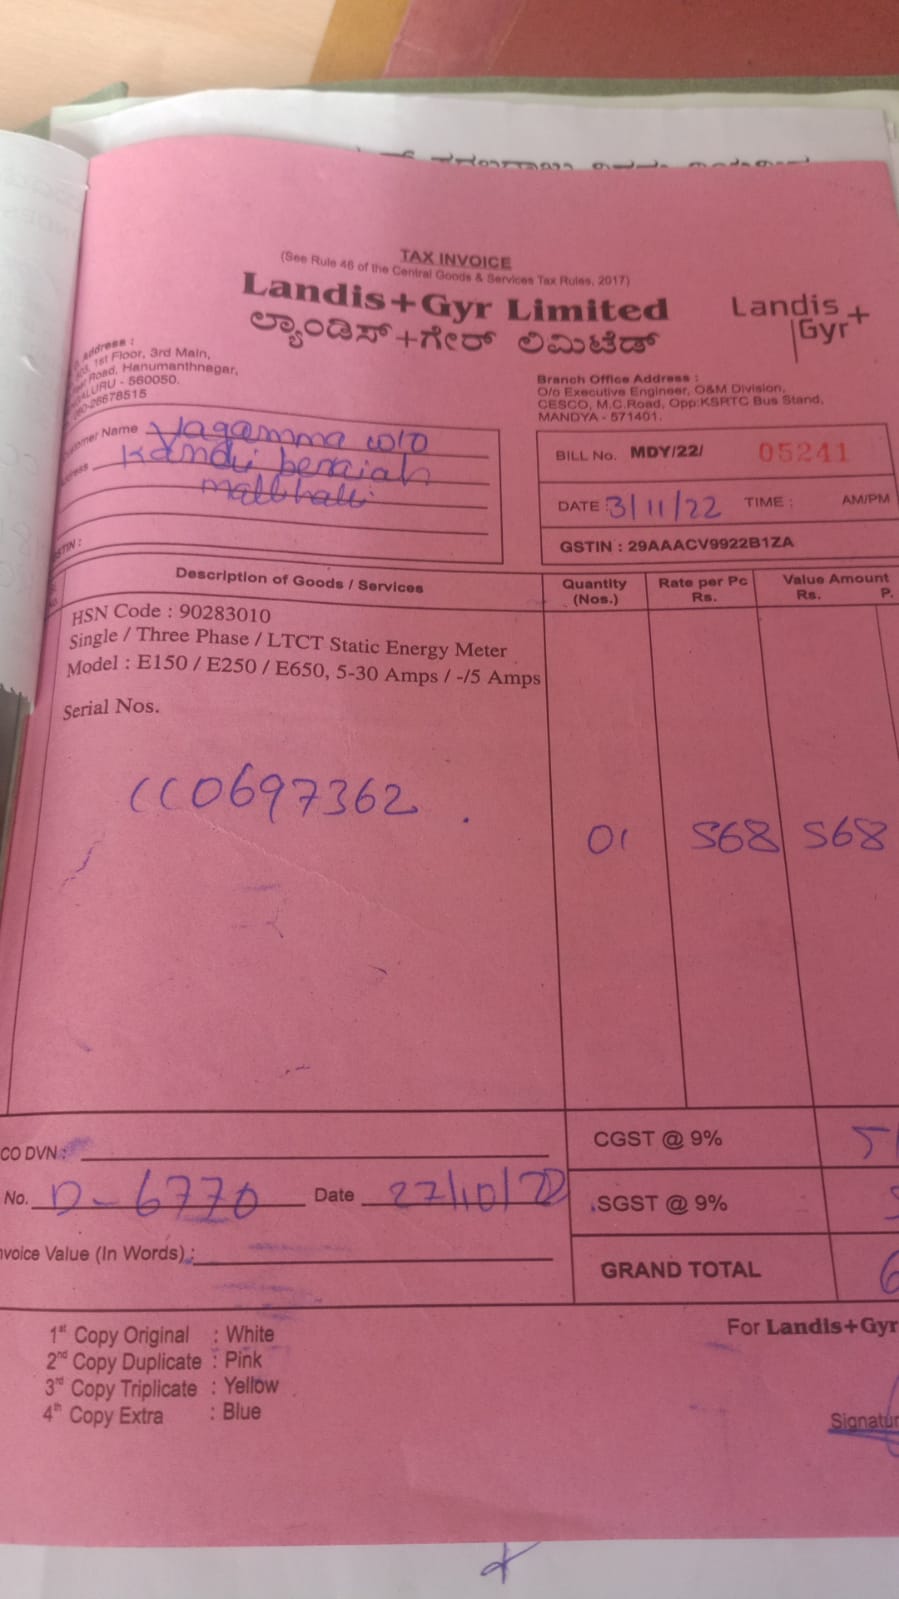 TAX INVOICE
(See Rule 46 of the Central Goods & Services Tax Rules, 2017)
Landis+Gyr Limited
ಲ್ಯಾಂಡಿಸ್+ಗೇರ್ ಲಿಮಿಟೆಡ್
Landis+
Gyr
Address :
1st Floor, 3rd Main,
Road, Hanumanthnagar,
- 560050.
26678515
Branch Office Address :
O/o Executive Engineer, O&M Division,
CESCO, M.C.Road, Opp:KSRTC Bus Stand,
MANDYA - 571401.
Name W/O
BILL No. MDY/22/ 05241
DATE : 3/11/22 TIME : AM/PM
GSTIN : 29AAACV9922B1ZA
Description of Goods / Services
Quantity (Nos.)
Rate per Pc Rs.
Value Amount Rs. P.
HSN Code : 90283010
Single / Three Phase / LTCT Static Energy Meter
Model : E150 / E250 / E650, 5-30 Amps / -/5 Amps
Serial Nos.
CC0697362
01 568 568
CO DVN :
CGST @ 9%
No. D-6770 Date 27/10/22
SGST @ 9%
nvoice Value (In Words) :
GRAND TOTAL
1st Copy Original : White
2nd Copy Duplicate : Pink
3rd Copy Triplicate : Yellow
4th Copy Extra : Blue
For Landis+Gyr
Signatur